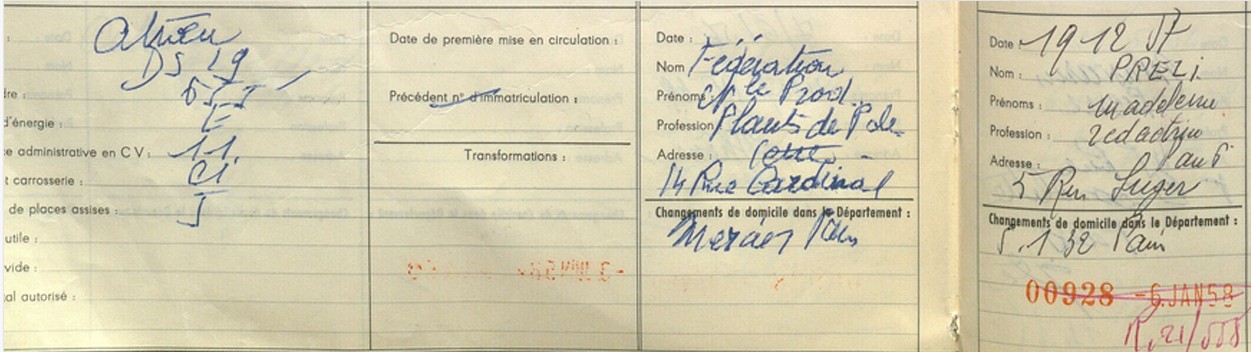 DS 19
E
d'énergie :
administrative en CV : 11.
carrosserie : CI
de places assises :
utile :
vide :
al autorisé :
Date de première mise en circulation :
Précédent n° d'immatriculation :
Transformations :
Date :
Nom Fédération
Prénoms de Prod.
Profession Plants de
Adresse :
14 Rue Cardinal
Changements de domicile dans le Département :
Mercier Paris
Date : 19 12 57
Nom :
Prénoms : Madeleine
Profession :
Adresse :
5 Rue Suger
Changements de domicile dans le Département :
Paris
00928 -6.JAN58